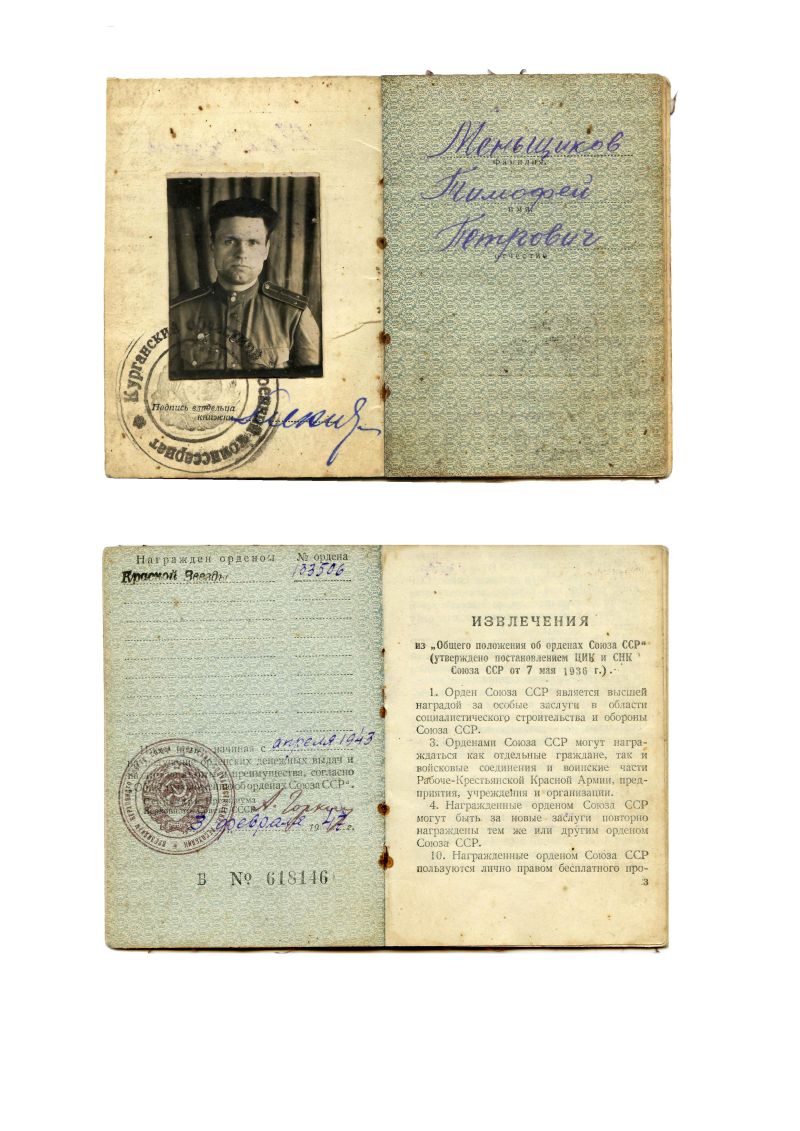 Меньщиков
Фамилия
Тимофей
имя
Петрович
отчество
Курганский областной военный комиссариат
Подпись владельца
книжки
Награжден орденом № ордена
Красной Звезды 103506
право, начиная с апреля 1943
денежных выдач и
преимущества, согласно
об орденах Союза ССР“.
А. Горкин
3 февраля 1947 г.
В № 618146
ИЗВЛЕЧЕНИЯ
из „Общего положения об орденах Союза ССР“
(утверждено постановлением ЦИК и СНК
Союза ССР от 7 мая 1936 г.).
1. Орден Союза ССР является высшей
наградой за особые заслуги в области
социалистического строительства и обороны
Союза ССР.
3. Орденами Союза ССР могут награ-
ждаться как отдельные граждане, так и
войсковые соединения и воинские части
Рабоче-Крестьянской Красной Армии, пред-
приятия, учреждения и организации.
4. Награжденные орденом Союза ССР
могут быть за новые заслуги повторно
награждены тем же или другим орденом
Союза ССР.
10. Награжденные орденом Союза ССР
пользуются лично правом бесплатного про-
3